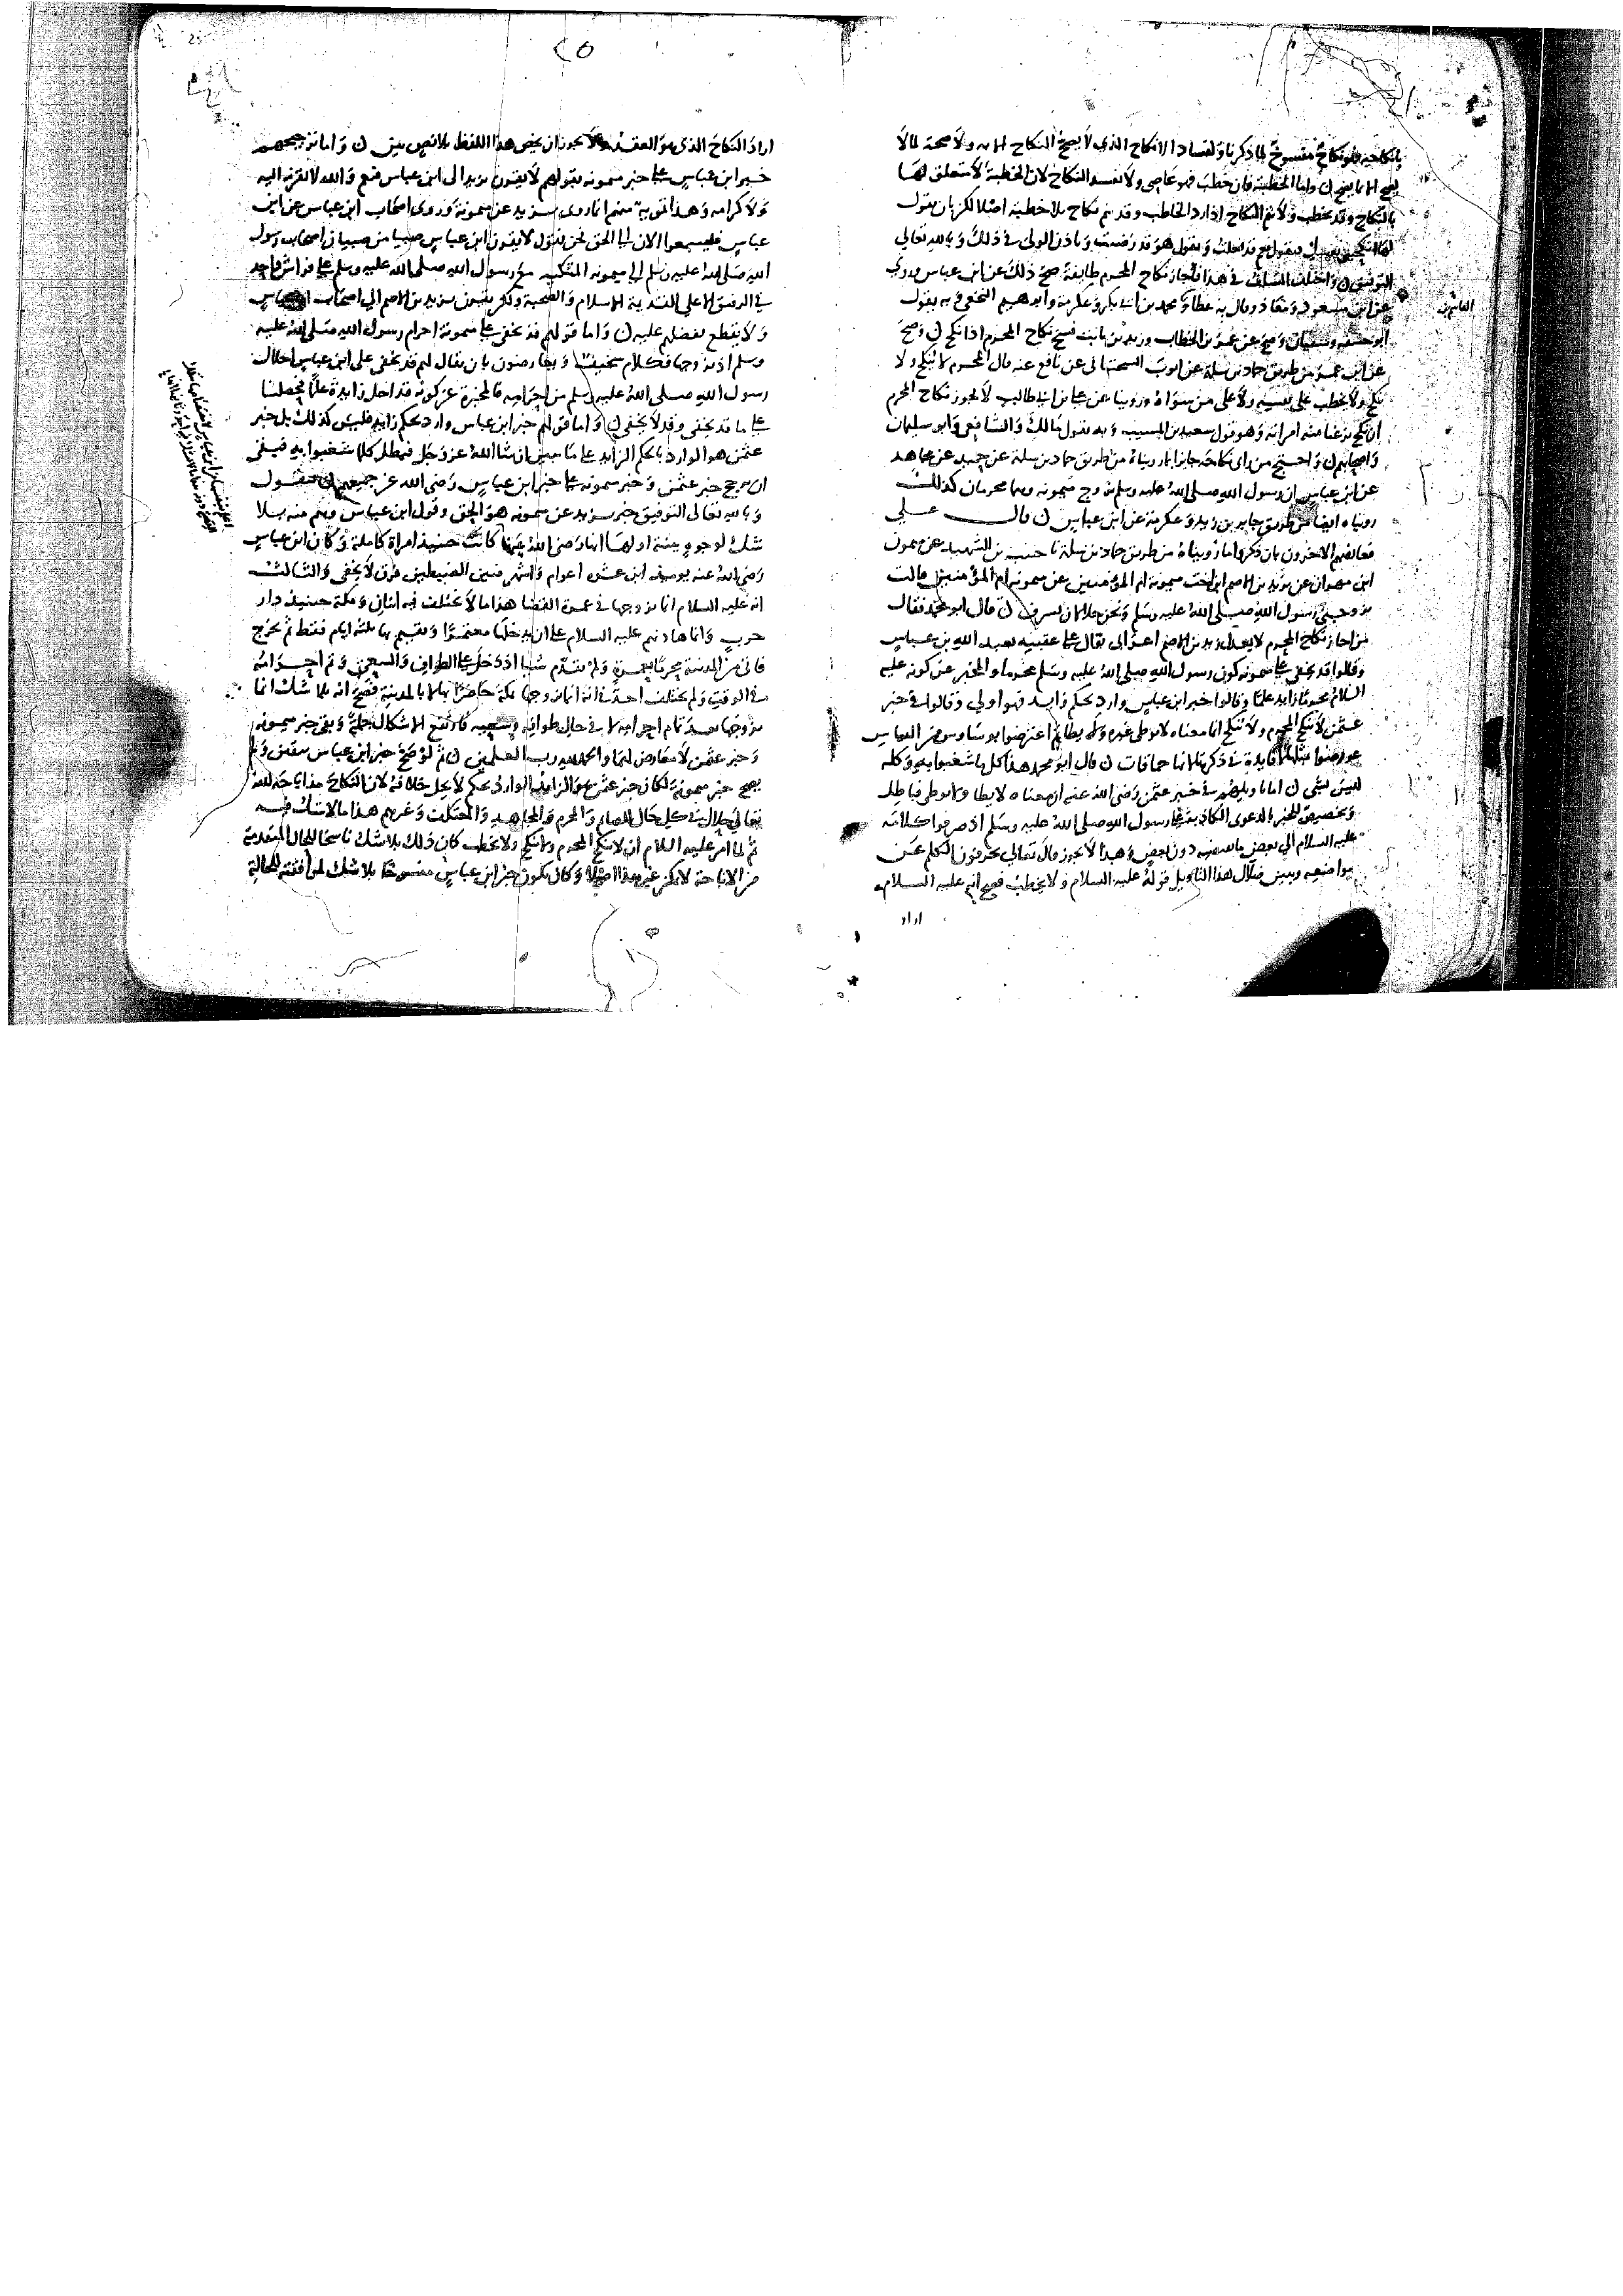 بانكاحه فهو نكاح مفسوخ لما ذكرنا ولفساد الانكاح الذي لا يصح النكاح الا به ولا صحة لما لا
يصح الا بما يصح ن واما الخطبة فان خطب فهو عاصي ولا يفسد النكاح لان الخطبة لا متعلق لها
بالنكاح وقد يخطب ولا يتم النكاح اذا رد الخاطب وقد يتم نكاح بلا خطبة اصلا لكن بان يقول
لها انكحيني نفسك فتقول نعم قد فعلت ويقول هو قد رضيت وباذن الولي في ذلك وبالله تعالى
التوفيق ن واختلف السلف في هذا فاجاز نكاح المحرم طايفة صح ذلك عن ابن عباس وروي
عن ابن مسعود ومعاذ وقال به عطا ومحمد بن ابي بكر وعكرمة وابراهيم النخعي وبه يقول
القاسم بن
ابو حنيفة وسفيان وصح عن عمر بن الخطاب وزيد بن ثابت فسخ نكاح المحرم اذا نكح ن وصح
عن ابن عمر من طريق حماد بن سلمة عن ايوب السختياني عن نافع عنه قال المحرم لا ينكح ولا
ينكح ولا يخطب على نفسه ولا على من سواه وروينا عن علي بن ابي طالب لا يجوز نكاح المحرم
ان نكح نزعنا منه امراته وهو قول سعيد بن المسيب وبه يقول مالك والشافعي وابو سليمان
واصحابهم ن واحتج من راى نكاحه جايزا بما رويناه من طريق حماد بن سلمة عن حميد عن مجاهد
عن ابن عباس ان رسول الله صلى الله عليه وسلم تزوج ميمونه وهما محرمان كذلك
رويناه ايضا من طريق جابر بن زيد وعكرمة عن ابن عباس ن قال علي
فعارضهم الاخرون بان ذكروا ما رويناه من طريق حماد بن سلمة نا حبيب بن الشهيد عن ميمون
ابن مهران عن يزيد بن الاصم ابن اخت ميمونة ام المؤمنين عن ميمونه ام المؤمنين قالت
تزوجني رسول الله صلى الله عليه وسلم ونحن حلالان بسرف ن قال ابو محمد فقال
من اجاز نكاح المحرم لا يعدل يزيد بن الاصم اعرابي بوال على عقبيه بعبد الله بن عباس
وقالوا قد يخفى على ميمونه كون رسول الله صلى الله عليه وسلم محرما والمخبر عن كونه عليه
السلام محرما زايد علما وقالوا خبر ابن عباس وارد بحكم زايد فهو اولى وقالوا في خبر
عثمن لا ينكح المحرم ولا ينكح انما معناه لا يوطى غيره ولا يطا ثم اعترضوا بوساوس
عورضوا بمثلها لا فايدة في ذكرها لانها حماقات ن قال ابو محمد هذا كل ما شغبوا به وكله
ليس بشي ن اما تاويلهم في خبر عثمن رضى الله عنه ان معناه لا يطا ولا يوطى فباطل
وتخصيص للخبر بالدعوى الكاذبة على رسول الله صلى الله عليه وسلم اذ صرفوا كلامه
عليه السلام الى بعض ما يقتضيه دون بعض وهذا لا يجوز قال تعالى يحرفون الكلم عن
مواضعه ويبين ضلال هذا التاويل قوله عليه السلام ولا يخطب فصح انه عليه السلام
اراد
٢٥
اراد النكاح الذي هو العقد ولا يجوز ان يخص هذا اللفظ بلا نص بين ن واما ترجيحهم
خبر ابن عباس على خبر ميمونه بقولهم لا يقرن يزيد الى ابن عباس فنعم والله لا نقرنه اليه
ولا كرامة وهذا تمويه منهم انما روى يزيد عن ميمونة وروى اصحاب ابن عباس عن ابن
عباس فليسمعوا الان الى الحق نحن نقول لا يقرن ابن عباس صبيا من صبيان اصحاب رسول
الله صلى الله عليه وسلم الى ميمونه المتكية مع رسول الله صلى الله عليه وسلم على فراش واحد
في الرفيق الاعلى القديمة الاسلام والصحبة ولكن يقرن يزيد بن الاصم الى اصحاب ابن عباس
ولا يقطع بفضلهم عليه ن واما قولهم قد يخفى على ميمونة احرام رسول الله صلى الله عليه
وسلم اذ تزوجها فكلام سخيف ويعارضون بان يقال لهم قد يخفى على ابن عباس احلال
رسول الله صلى الله عليه وسلم من احرامه فالمخبرة عن كونه قد احل زايدة علما فحصلنا
على ما قد يخفى وقد لا يخفى ن واما قولهم خبر ابن عباس وارد بحكم زايد فليس كذلك بل خبر
عثمن هو الوارد بالحكم الزايد على ما نبين ان شا الله عز وجل فبطل كل ما شغبوا به فبقي
ان نرجح خبر عثمن وخبر ميمونه على خبر ابن عباس رضى الله عن جميعهم ن فنقول
وبالله تعالى التوفيق خبر يزيد عن ميمونه هو الحق وقول ابن عباس وهم منه بلا
شك لوجوه بينة اولها انها رضى الله عنها كانت حينيذ امراة كاملة وكان ابن عباس
رضى الله عنه يوميذ ابن عشرة اعوام واشهر فبين الضبطين فرق لا يخفى والثالث
انه عليه السلام انما تزوجها في عمرة القضا هذا ما لا يختلف فيه اثنان ومكة حينيذ دار
حرب وانما هادنهم عليه السلام على ان يدخلها معتمرا ويقيم بها ثلثة ايام فقط ثم يخرج
فاتى من المدينة محرما بعمرة ولم يقدم شيا اذ دخل على الطواف والسعي وتم احرامه
في الوقت ولم يختلف احد في انه انما تزوجها بمكة حاضرا بها لا بالمدينة فصح انه بلا شك انما
تزوجها بعد تمام احرامه لا في حال طوافه وسعيه فارتفع الاشكال جملة وبقي خبر ميمونه
وخبر عثمن لا معارض لهما والحمد لله رب العلمين ن ثم لو صح خبر ابن عباس بيقين ولم
يصح خبر ميمونة لكان خبر عثمن هو الزايد الوارد بحكم لا يحل خلافه لان النكاح مذ اباحه الله
تعالى حلال في كل حال للصايم والمحرم والمجاهد والمعتكف وغيرهم هذا ما لا شك فيه
ثم لما امر عليه السلام ان لا ينكح المحرم ولا ينكح ولا يخطب كان ذلك بلا شك ناسخا للحال المتقدمة
من الاباحة لا يمكن غير هذا اصلا وكان يكون خبر ابن عباس منسوخا بلا شك لموافقته للحالة